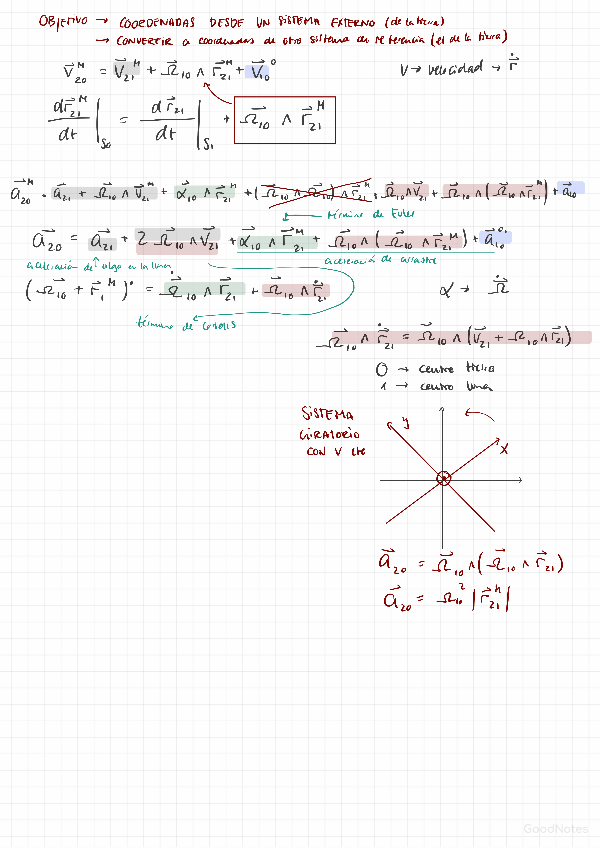 OBJETIVO → COORDENADAS DESDE UN SISTEMA EXTERNO (de la tierra)
→ CONVERTIR a coordenadas de otro sistema de referencia (el de la tierra)
V⃗₂₀ᴹ = V⃗₂₁ᴹ + Ω⃗₁₀ ∧ r⃗₂₁ᴹ + V⃗₁₀⁰
V → velocidad → ṙ
dr⃗₂₁ᴹ/dt |S₀ = dr⃗₂₁/dt |S₁ + Ω⃗₁₀ ∧ r⃗₂₁ᴹ
término de Euler
a⃗₂₀ = a⃗₂₁ + 2 Ω⃗₁₀ ∧ V⃗₂₁ + α⃗₁₀ ∧ r⃗₂₁ᴹ + Ω⃗₁₀ ∧ (Ω⃗₁₀ ∧ r⃗₂₁ᴹ) + a⃗₁₀⁰
aceleración de algo en la luna
aceleración de arrastre
α → Ω̇
término de Coriolis
Ω⃗₁₀ ∧ ṙ⃗₂₁ = Ω⃗₁₀ ∧ (V⃗₂₁ + Ω⃗₁₀ ∧ r⃗₂₁)
0 → centro tierra
1 → centro luna
SISTEMA
GIRATORIO
CON V cte
y
x
a⃗₂₀ = Ω⃗₁₀ ∧ (Ω⃗₁₀ ∧ r⃗₂₁)
a⃗₂₀ = Ω₁₀² |r⃗₂₁ᴹ|
GoodNotes